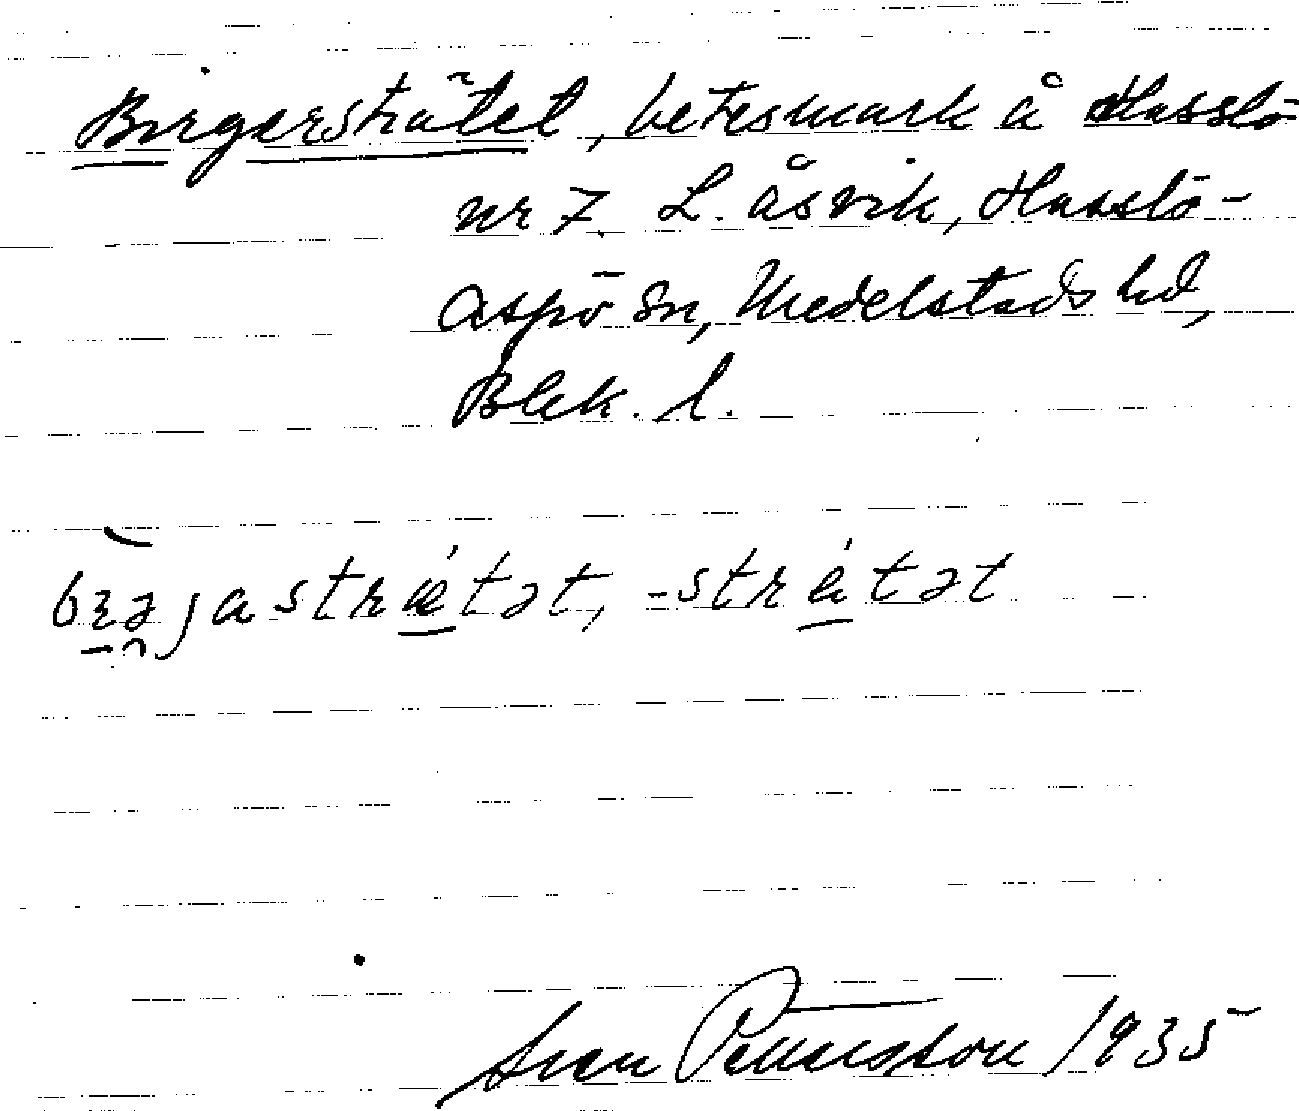 Birgersträtet, betesmark å Hasslö
nr 7. L. åsvik, Hasslö-
Aspö sn, Medelstads hd,
Blek. l.
bɜəjastrǽtət, -strátət
Sven Pettersson 1935